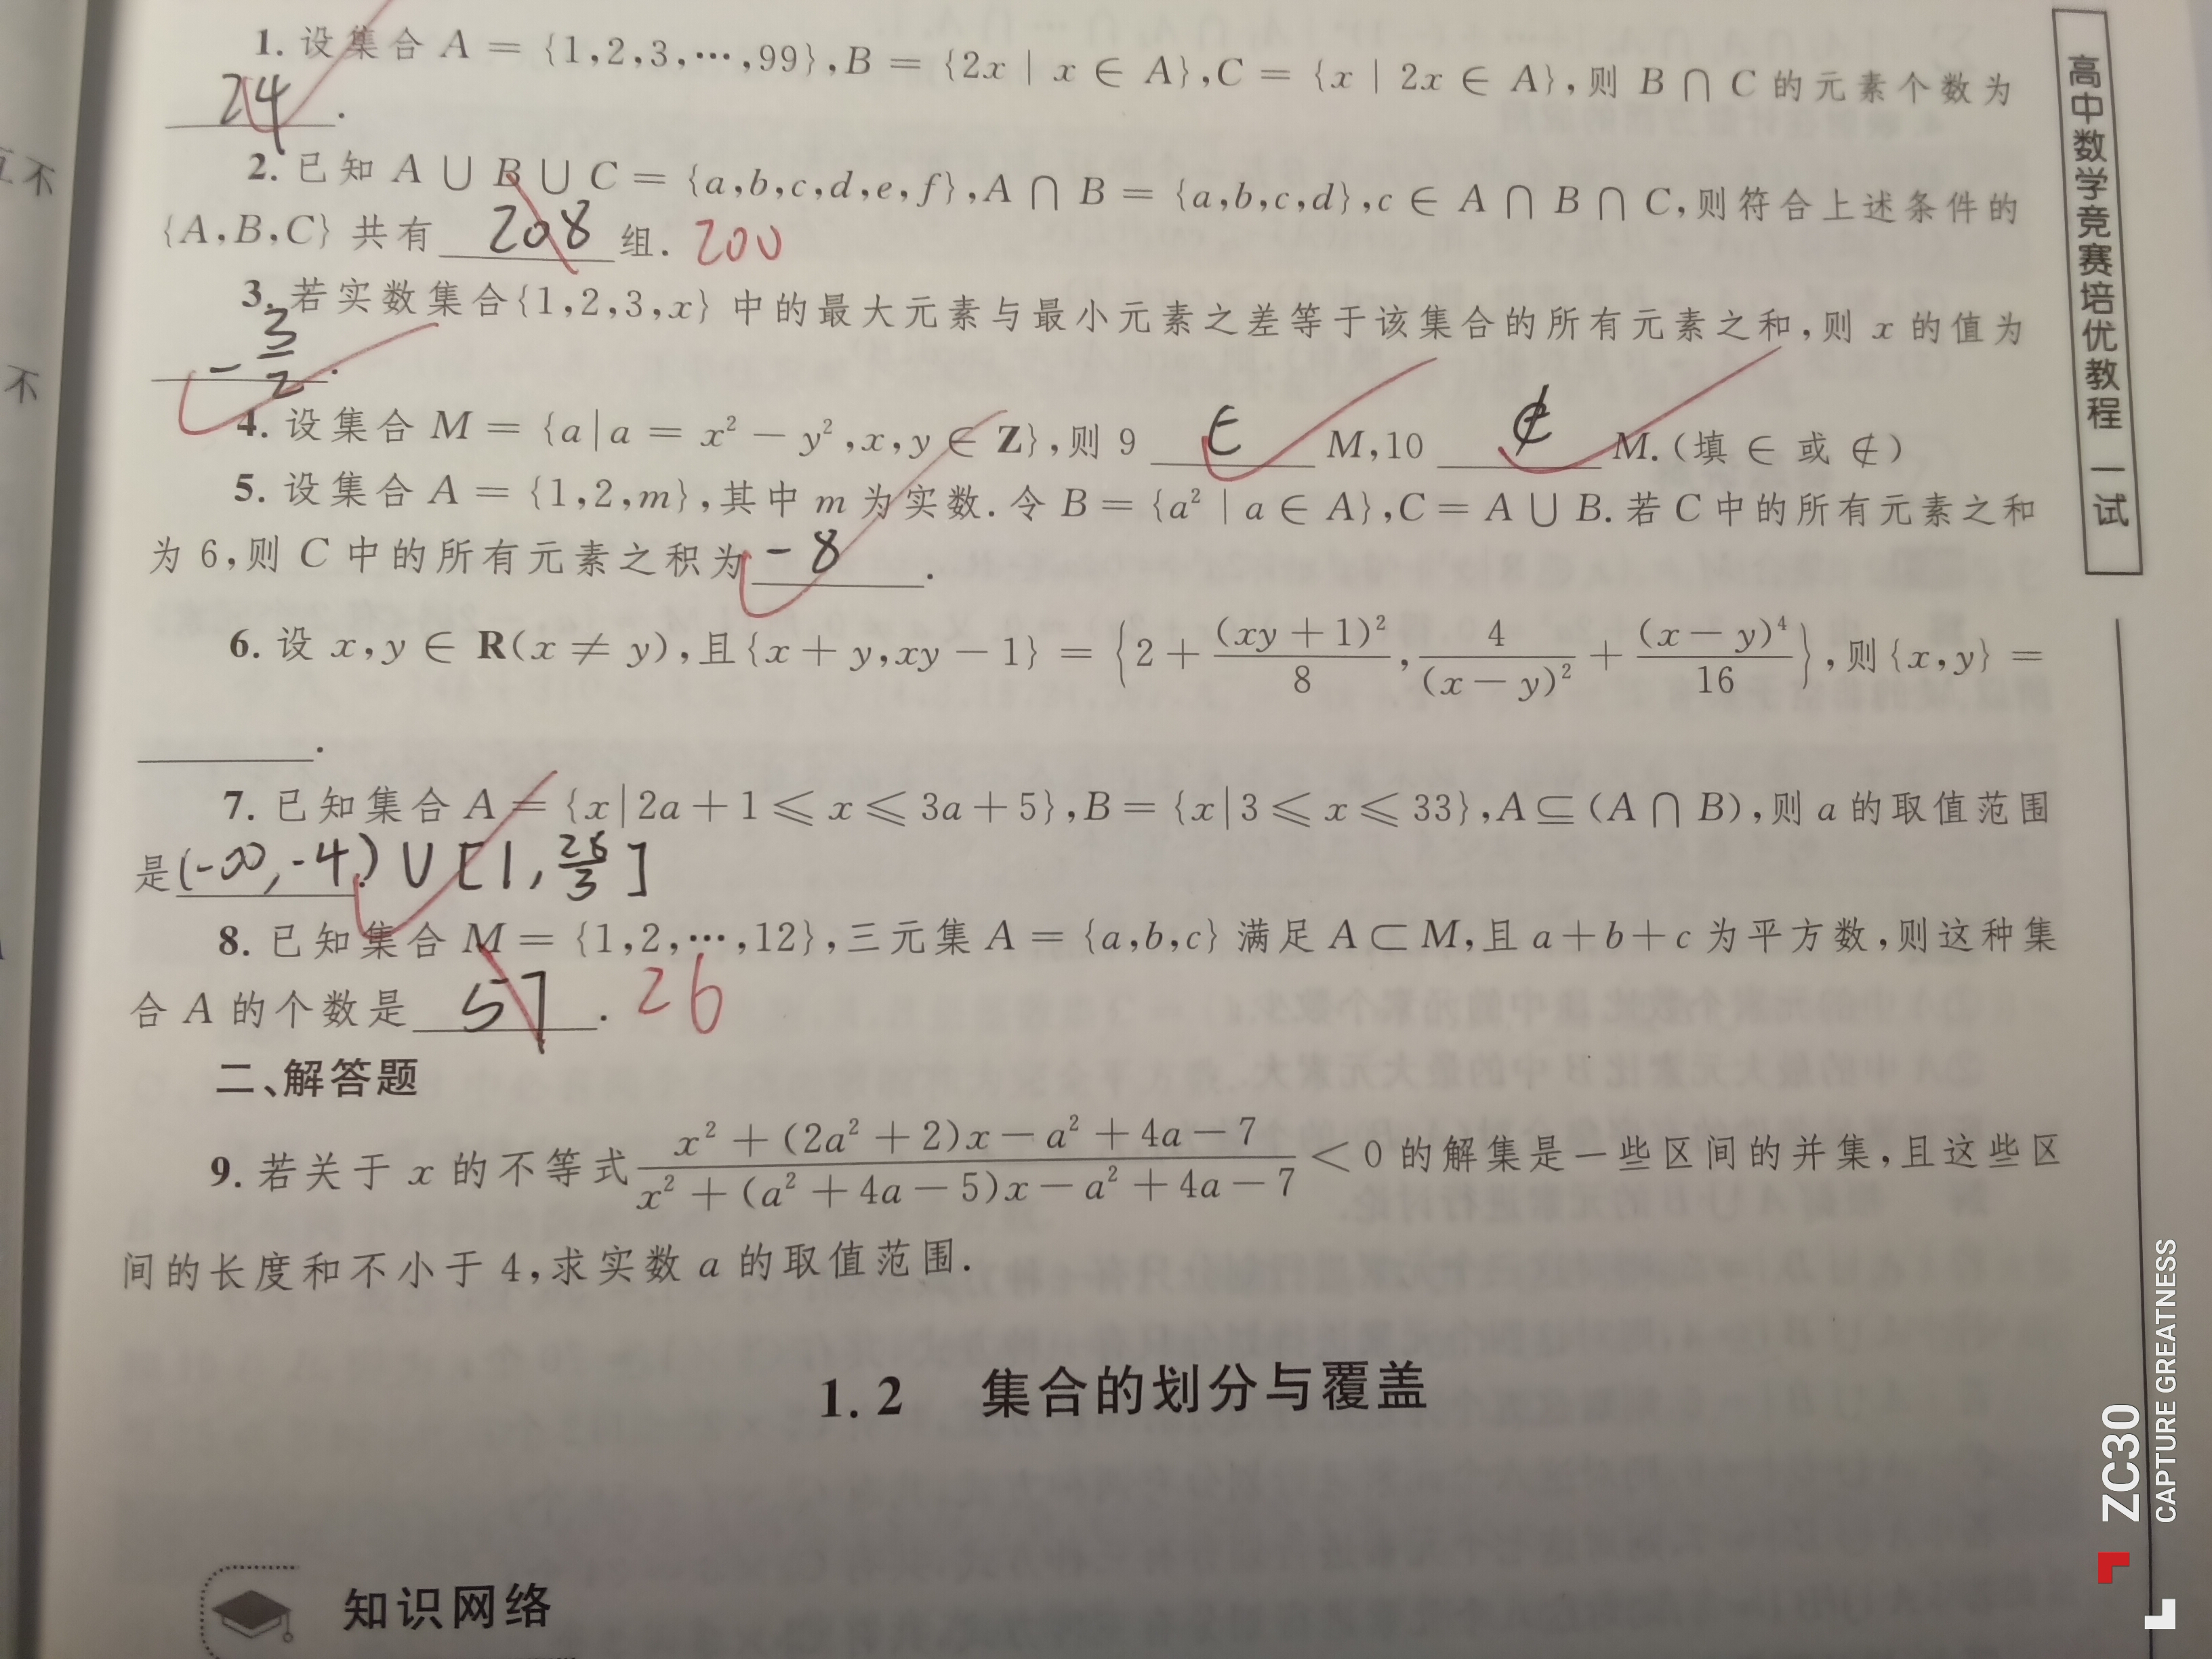 1. 设集合 A = {1,2,3,⋯,99}, B = {2x | x ∈ A}, C = {x | 2x ∈ A}, 则 B ∩ C 的元素个数为
24.
2. 已知 A ∪ B ∪ C = {a,b,c,d,e,f}, A ∩ B = {a,b,c,d}, c ∈ A ∩ B ∩ C, 则符合上述条件的
{A,B,C} 共有 208 组. 200
3. 若实数集合{1,2,3,x} 中的最大元素与最小元素之差等于该集合的所有元素之和, 则 x 的值为
-3/2.
4. 设集合 M = {a|a = x² − y², x,y ∈ Z}, 则 9 ∈ M, 10 ∉ M. (填 ∈ 或 ∉)
5. 设集合 A = {1,2,m}, 其中 m 为实数. 令 B = {a² | a ∈ A}, C = A ∪ B. 若 C 中的所有元素之和
为 6, 则 C 中的所有元素之积为 -8.
6. 设 x,y ∈ R(x ≠ y), 且{x + y, xy − 1} = {2 + (xy + 1)²/8, 4/(x − y)² + (x − y)⁴/16}, 则{x,y} =
.
7. 已知集合 A = {x|2a + 1 ⩽ x ⩽ 3a + 5}, B = {x|3 ⩽ x ⩽ 33}, A ⊆ (A ∩ B), 则 a 的取值范围
是 (-∞,-4) ∪ [1, 28/3].
8. 已知集合 M = {1,2,⋯,12}, 三元集 A = {a,b,c} 满足 A ⊂ M, 且 a + b + c 为平方数, 则这种集
合 A 的个数是 57. 26
二、解答题
9. 若关于 x 的不等式 (x² + (2a² + 2)x − a² + 4a − 7)/(x² + (a² + 4a − 5)x − a² + 4a − 7) < 0 的解集是一些区间的并集, 且这些区
间的长度和不小于 4, 求实数 a 的取值范围.
1.2 集合的划分与覆盖
知识网络
高中数学竞赛培优教程 一试
不
不
ZC30
CAPTURE GREATNESS